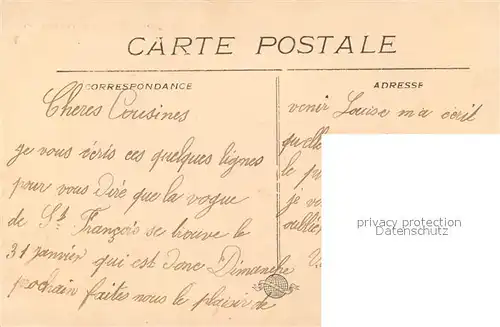 CARTE POSTALE
CORRESPONDANCE
ADRESSE
Cheres Cousines
je vous écris ces quelques lignes
pour vous Dire que la vogue
de St François se trouve le
31 janvier qui est donc Dimanche
prochain faites nous le plaisir de
venir Louise m'a écrit
qu'elle
le
je
oublier
privacy protection
Datenschutz